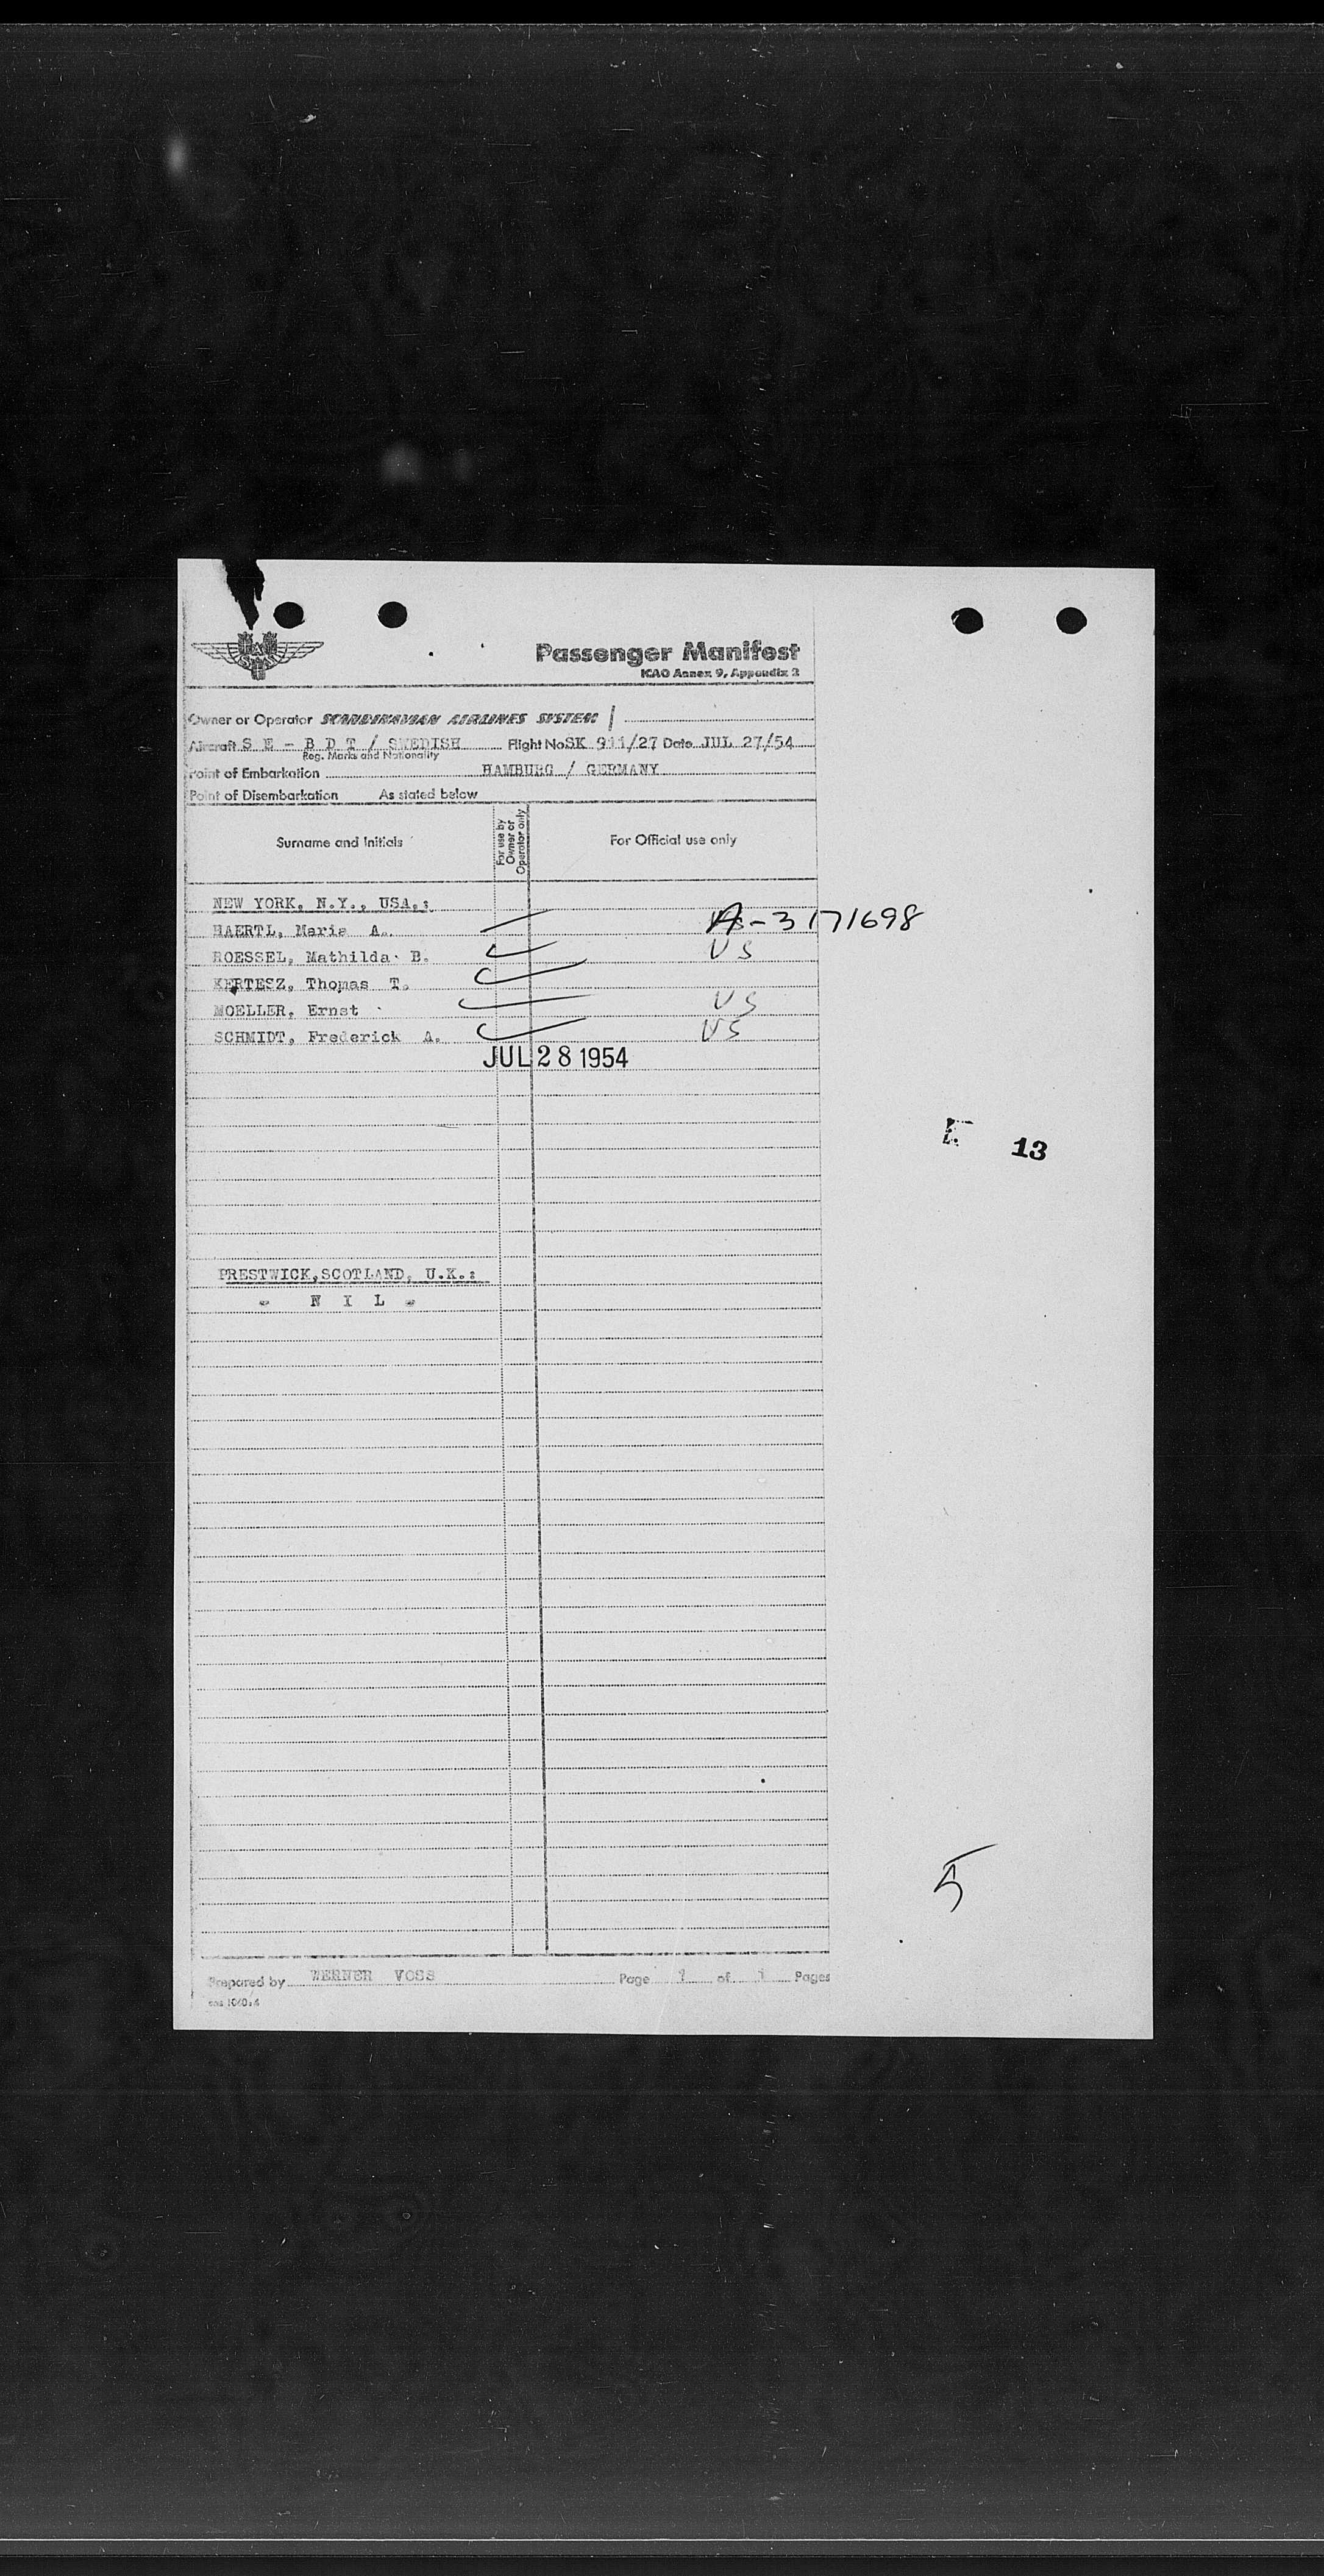 Passenger Manifest
ICAO Annex 9, Appendix 2
Owner or Operator SCANDINAVIAN AIRLINES SYSTEM /
Aircraft S E - B D T / SWEDISH Flight No SK 911/27 Date JUL 27/54
Reg. Marks and Nationality
Point of Embarkation HAMBURG / GERMANY
Point of Disembarkation As stated below
Surname and Initials For use by Owner or Operator only For Official use only
NEW YORK, N.Y., USA.:
HAERTL, Maria A. A-3171698
ROESSEL, Mathilda B. US
KERTESZ, Thomas T.
MOELLER, Ernst US
SCHMIDT, Frederick A. US
JUL 28 1954
13
PRESTWICK,SCOTLAND, U.K.:
- N I L -
5
Prepared by WERNER VOSS Page 1 of 1 Pages